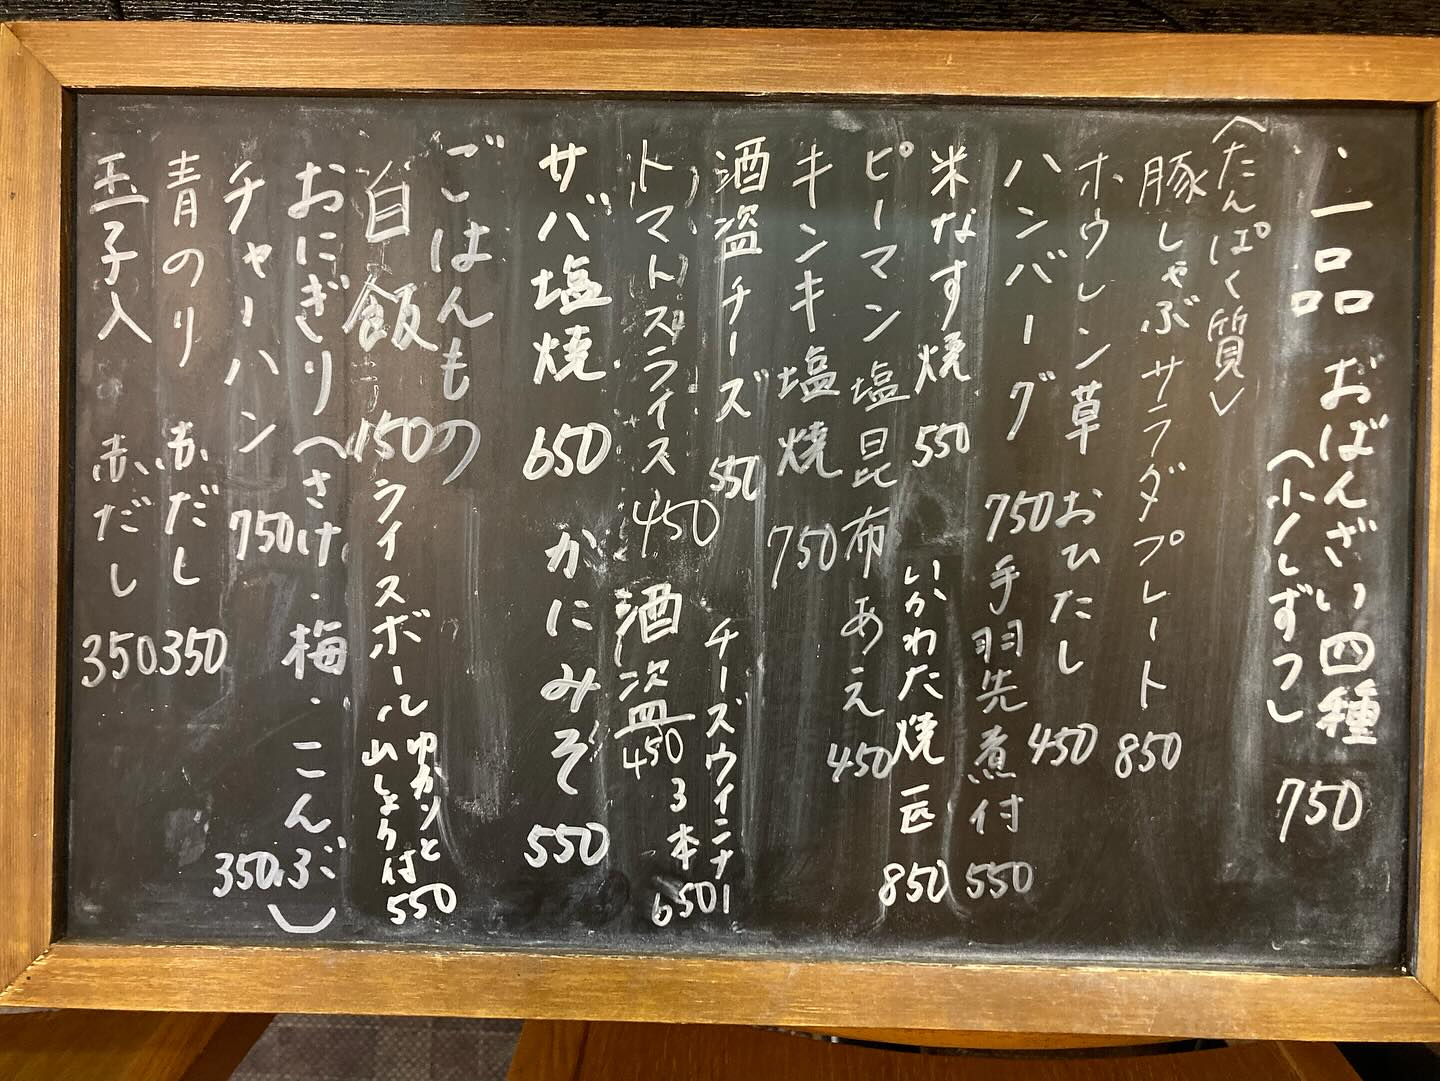 一品 おばんざい四種 750
(少しずつ)
〈たんぱく質〉
豚しゃぶサラダプレート 850
ホウレン草 おひたし 450
ハンバーグ 750 手羽先煮付 550
米なす焼 550 いかわた焼 一匹 850
ピーマン塩昆布あえ 450
キンキ塩焼 750
酒盗チーズ 550 チーズウインナー 3本 650
トマトスライス 450 酒盗 450
サバ塩焼 650 かにみそ 550
ごはんもの
白飯 150 ライスボール ゆかりと山しょう付 550
おにぎり(さけ・梅・こんぶ) 350
チャーハン 750
青のり 赤だし 350
玉子入 赤だし 350